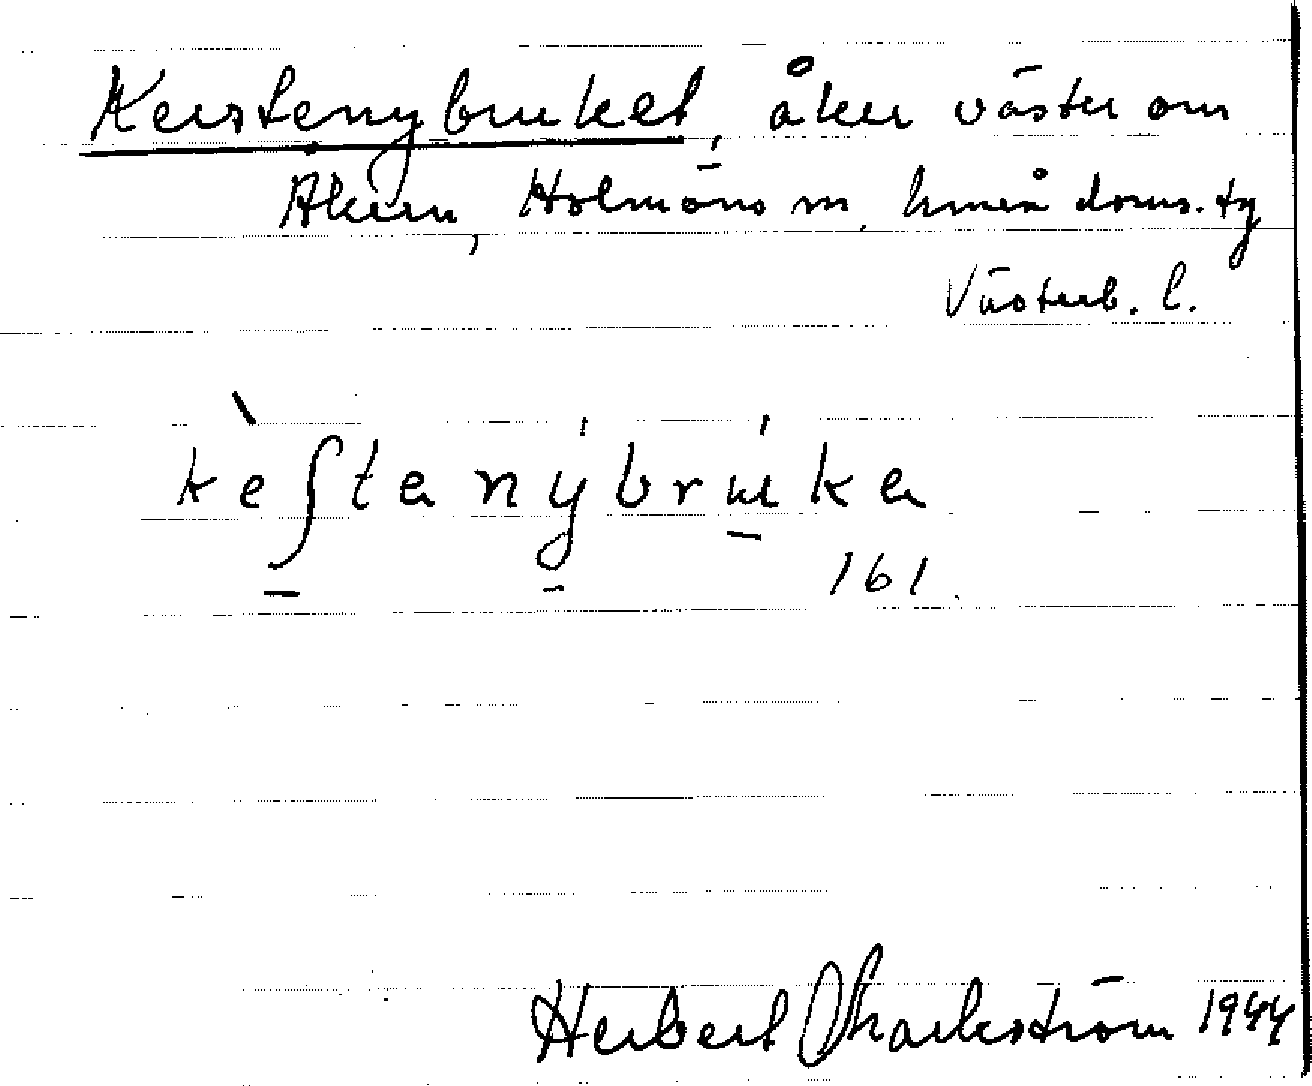 Kerstenybruket, åker väster om
Åkern, Holmöns sn, Umeå doms. tg
Västerb. l.
kèʃtanýbrúka
161.
Herbert 1944